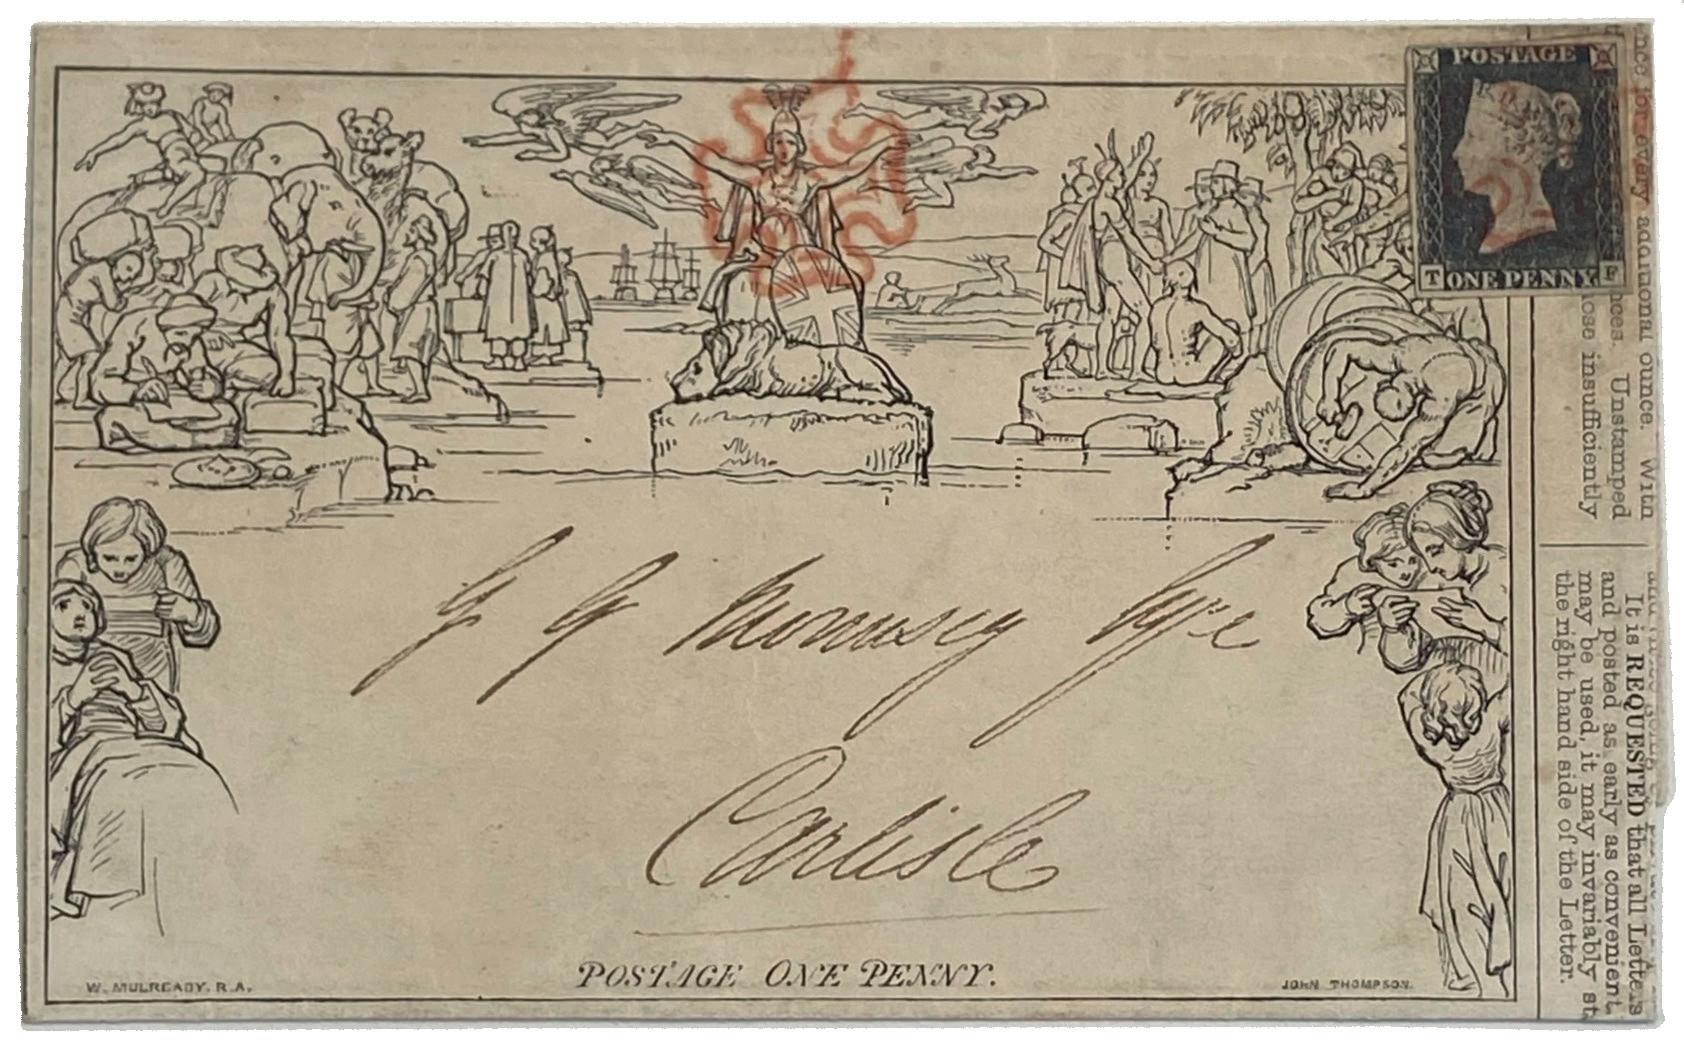 POSTAGE
T ONE PENNY F
G G Mounsey Esqre
Carlisle
POSTAGE ONE PENNY.
W. MULREADY. R.A.
JOHN THOMPSON.
nce for every additional ounce. With
nces. Unstamped
ose insufficiently
It is REQUESTED that all Letters
and posted as early as convenient
may be used, it may invariably st
the right hand side of the Letter.